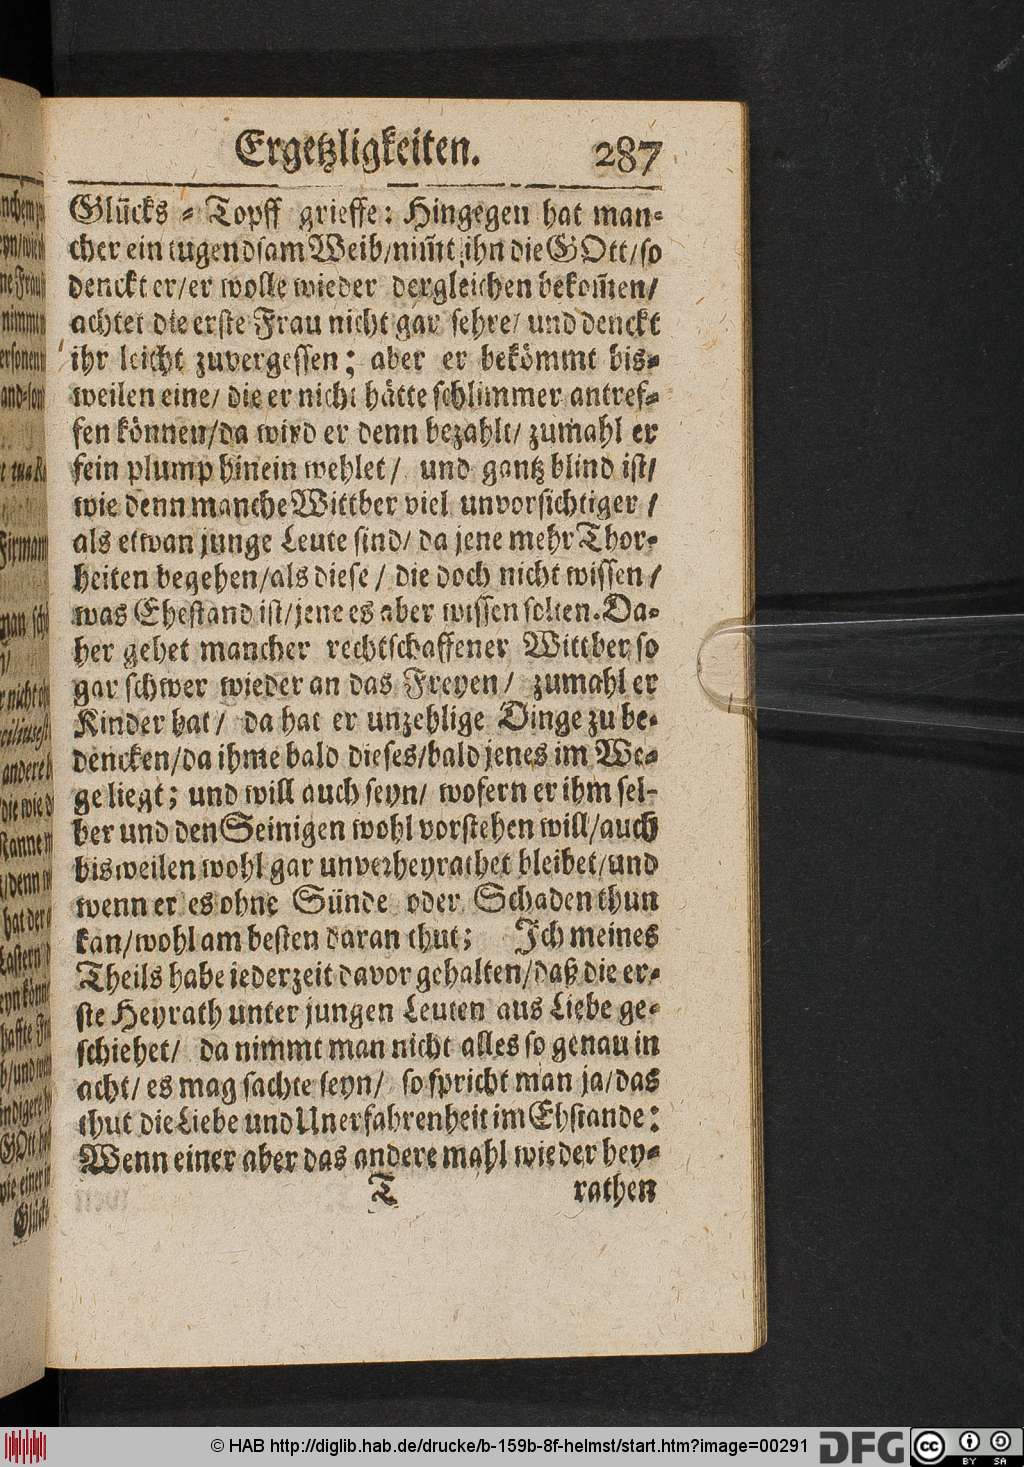 Ergetzligkeiten. 287
Glücks-Topff grieffe: Hingegen hat man-
cher ein tugendsam Weib/nim̃t ihn die GOtt/so
denckt er/er wolle wieder dergleichen bekom̃en/
achtet die erste Frau nicht gar sehre/ und denckt
ihr leicht zuvergessen; aber er bekömmt bis-
weilen eine/ die er nicht hätte schlimmer antref-
fen können/da wird er denn bezahlt/ zumahl er
fein plump hinein wehlet/ und gantz blind ist/
wie denn manche Wittber viel unvorsichtiger/
als etwan junge Leute sind/ da jene mehr Thor-
heiten begehen/als diese/ die doch nicht wissen/
was Ehestand ist/jene es aber wissen solten. Da-
her gehet mancher rechtschaffener Wittber so
gar schwer wieder an das Freyen/ zumahl er
Kinder hat/ da hat er unzehlige Dinge zu be-
dencken/da ihme bald dieses/bald jenes im We-
ge liegt; und will auch seyn/ wofern er ihm sel-
ber und den Seinigen wohl vorstehen will/auch
bisweilen wohl gar unverheyrathet bleibet/und
wenn er es ohne Sünde oder Schaden thun
kan/wohl am besten daran thut; Ich meines
Theils habe iederzeit davor gehalten/daß die er-
ste Heyrath unter jungen Leuten aus Liebe ge-
schiehet/ da nimmt man nicht alles so genau in
acht/ es mag sachte seyn/ so spricht man ja/das
thut die Liebe und Unerfahrenheit im Ehstande:
Wenn einer aber das andere mahl wieder hey-
T rathen
© HAB http://diglib.hab.de/drucke/b-159b-8f-helmst/start.htm?image=00291 DFG cc BY SA